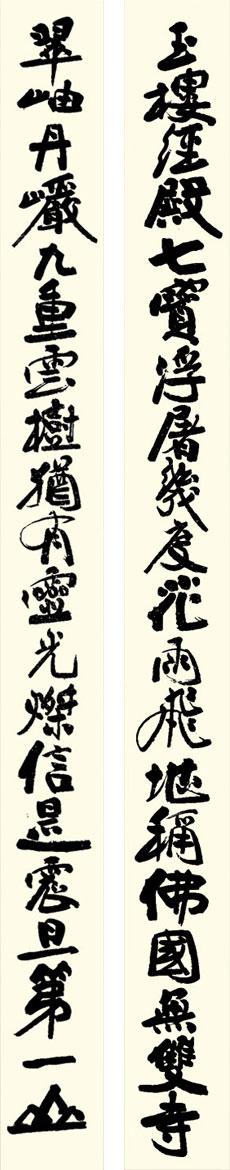 玉樓經殿七寶浮屠幾度花雨飛地稱佛國無雙寺
翠岫丹巖九重雲樹猶有靈光燦信是震旦第一山